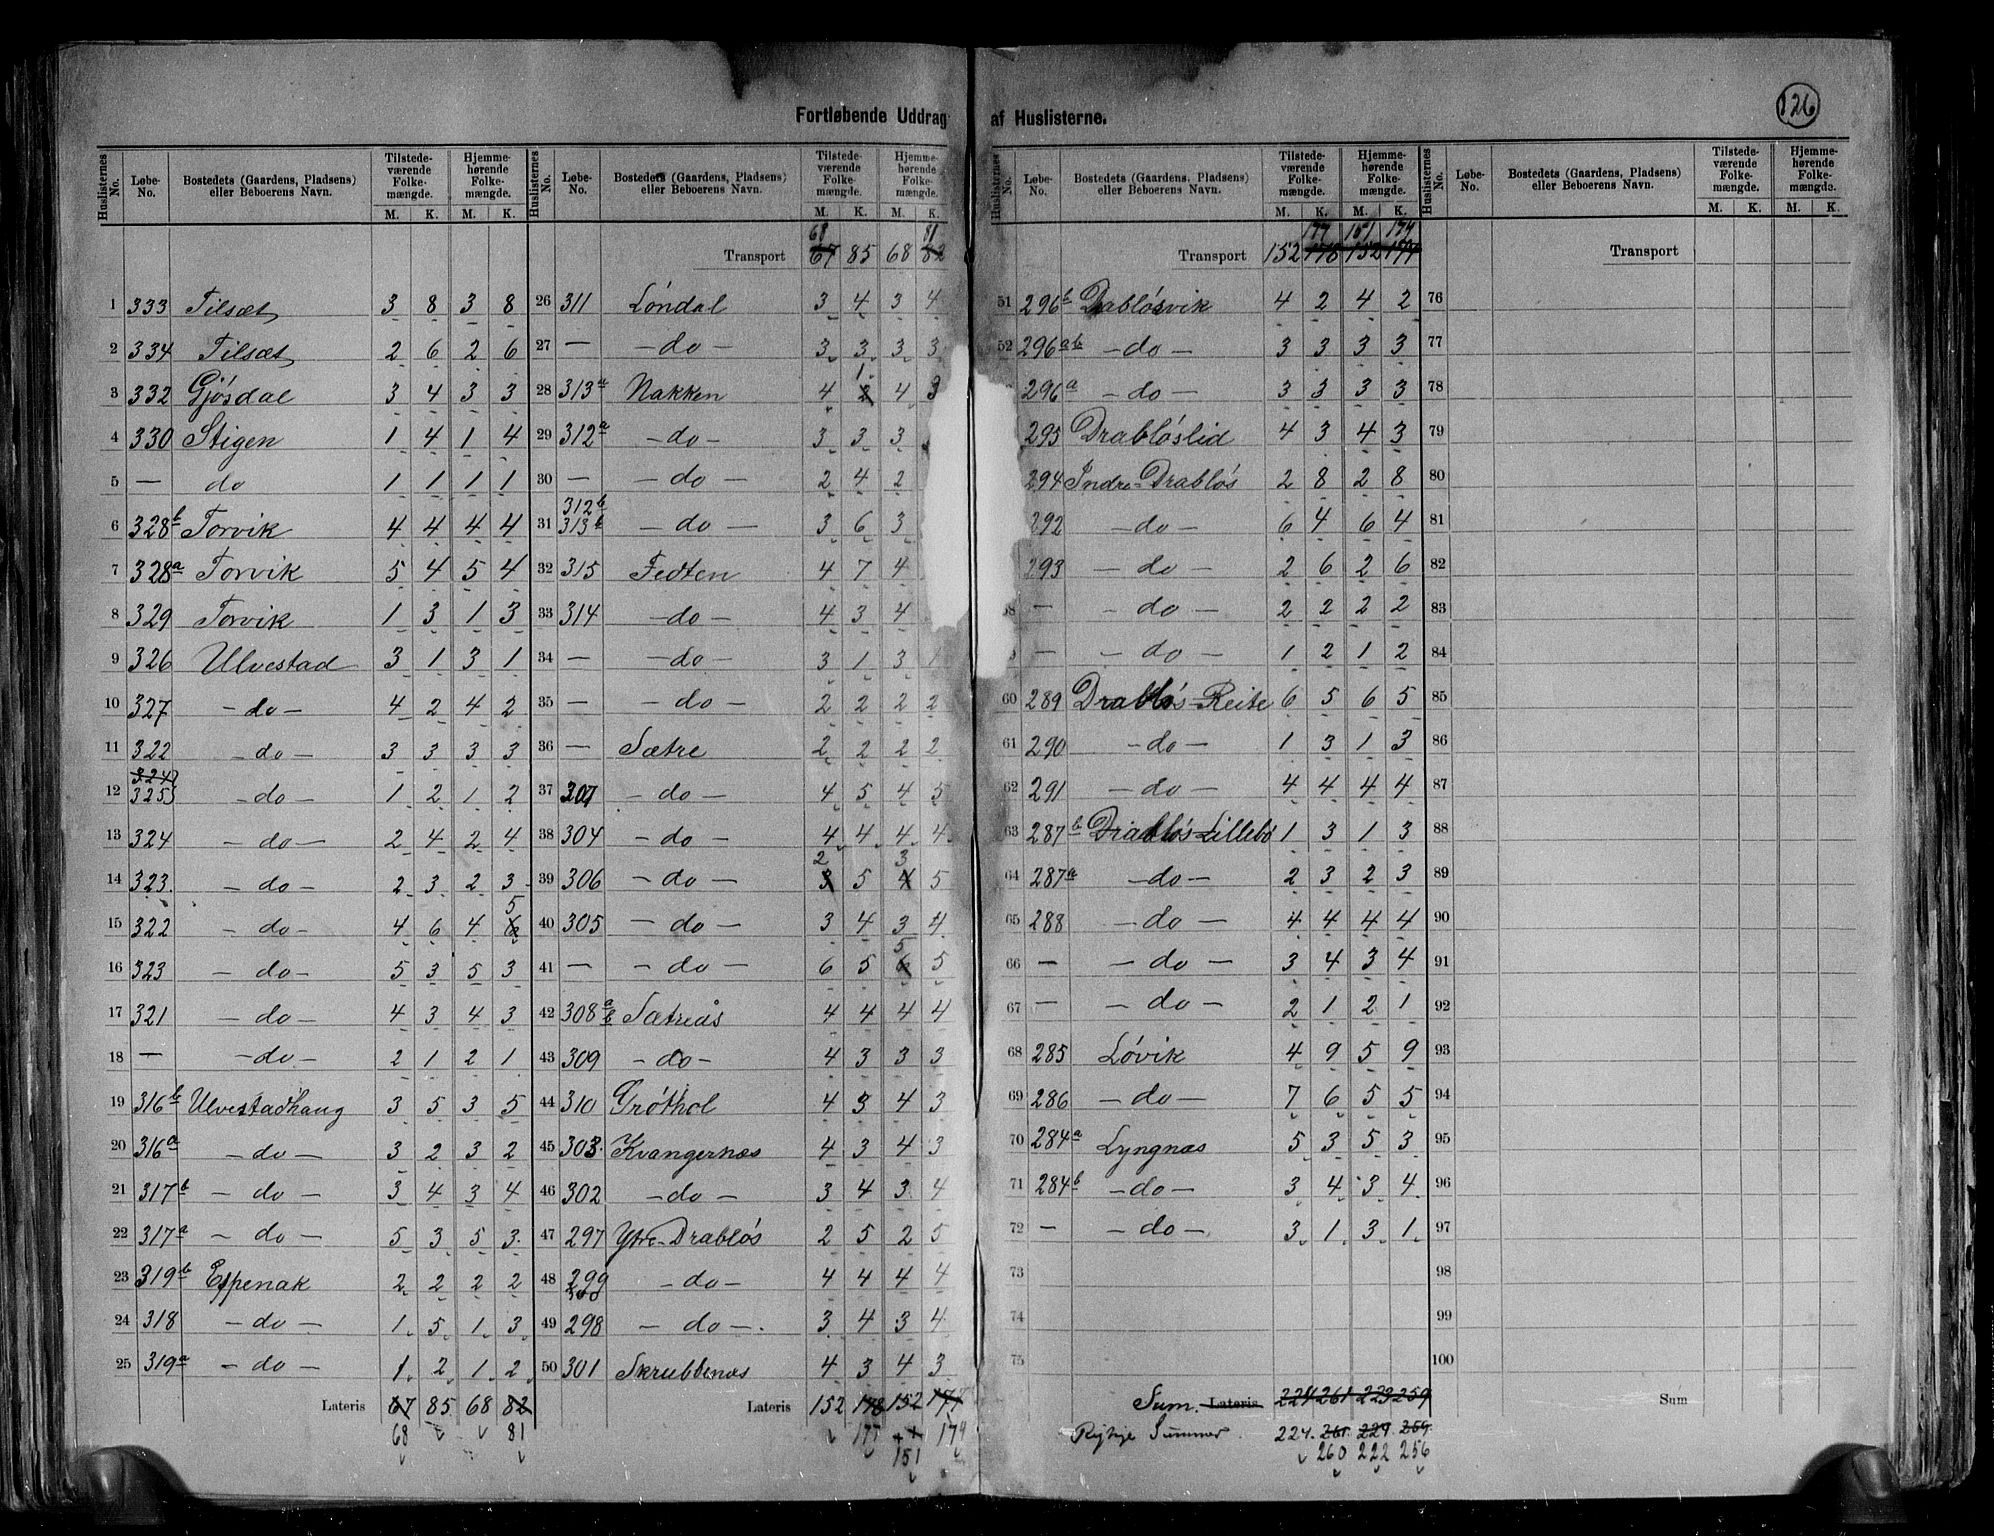 126
Fortløbende Uddrag af Huslisterne.
Huslisternes No. Løbe-No. Bostedets (Gaardens, Pladsens) eller Beboerens Navn. Tilstedeværende Folkemængde. M. K. Hjemmehørende Folkemængde. M. K.
1 333 Tilsæt 3 8 3 8
2 334 Tilsæt 2 6 2 6
3 332 Gjøsdal 3 4 3 3
4 330 Stigen 1 4 1 4
5 — do 1 1 1 1
6 328b Torvik 4 4 4 4
7 328a Torvik 5 4 5 4
8 329 Torvik 1 3 1 3
9 326 Ulvestad 3 1 3 1
10 327 -do- 4 2 4 2
11 322 -do- 3 3 3 3
12 324 325 -do- 1 2 1 2
13 324 -do- 2 4 2 4
14 323. -do- 2 3 2 3
15 322 -do- 4 6 4 6 5
16 323 -do- 5 3 5 3
17 321 -do- 4 3 4 3
18 — -do- 2 1 2 1
19 316b Ulvestadhaug 3 5 3 5
20 316a -do- 3 2 3 2
21 317b -do- 3 4 3 4
22 317a -do- 5 3 5 3
23 319b Espenak 2 2 2 2
24 318 -do- 1 5 1 3
25 319a -do- 1 2 1 2
Lateris 67 85 68 82
68 81
Huslisternes No. Løbe-No. Bostedets (Gaardens, Pladsens) eller Beboerens Navn. Tilstedeværende Folkemængde. M. K. Hjemmehørende Folkemængde. M. K.
68 81
Transport 67 85 68 82
26 311 Løndal 3 4 3 4
27 — -do- 3 3 3 3
28 313a Nakken 4 1 4 3
29 312a -do- 3 3 3
30 — -do- 2 4 2
31 312b 313b -do- 3 6 3
32 315 Fedten 4 7 4
33 314 -do- 4 3 4
34 — -do- 3 1 3 1
35 — -do- 2 2 2 2
36 — Sætre 2 2 2 2
37 307 -do- 4 5 4 5
38 304 -do- 4 4 4 4
2 3
39 306 -do- 3 5 4 5
40 305 -do- 3 4 3 4
5
41 — -do- 6 5 6 5
42 308a b Sætreås 4 4 4 4
43 309 -do- 4 3 3 3
44 310 Grøthol 4 3 4 3
45 303. Kvangernæs 4 3 4 3
46 302 -do- 3 4 3 4
47 297 Ytre-Drabløs 2 5 2 5
48 299 300 -do- 4 4 4 4
49 298 -do-. 3 4 3 4
50 301 Skrubbenæs 4 3 4 3
Lateris 152 178 152 177
177 151 174
Huslisternes No. Løbe-No. Bostedets (Gaardens, Pladsens) eller Beboerens Navn. Tilstedeværende Folkemængde. M. K. Hjemmehørende Folkemængde. M. K.
177 151 174
Transport 152 178 152 177
51 296b Drabløsvik 4 2 4 2
52 296ab -do- 3 3 3 3
296a -do- 3 3 3 3
295 Drabløslid 4 3 4 3
294 Indre-Drabløs 2 8 2 8
292 -do- 6 4 6 4
293 -do- 2 6 2 6
58 — -do- 2 2 2 2
— -do- 1 2 1 2
60 289 Drabløs-Reite 6 5 6 5
61 290 -do- 1 3 1 3
62 291 -do- 4 4 4 4
63 287b Drabløs-Lillebø 1 3 1 3
64 287a -do- 2 3 2 3
65 288 -do- 4 4 4 4
66 — -do- 3 4 3 4
67 — -do- 2 1 2 1
68 285 Løvik 4 9 5 9
69 286 -do- 7 6 5 5
70 284a Lyngnæs 5 3 5 3
71 284b -do- 3 4 3 4
72 — -do- 3 1 3 1
73
74
75
Sum. Lateris 224 261 223 259
Rigtige Summer. 224. 261 224. 259.
260 222 256
Huslisternes No. Løbe-No. Bostedets (Gaardens, Pladsens) eller Beboerens Navn. Tilstedeværende Folkemængde. M. K. Hjemmehørende Folkemængde. M. K.
Transport
76
77
78
79
80
81
82
83
84
85
86
87
88
89
90
91
92
93
94
95
96
97
98
99
100
Sum